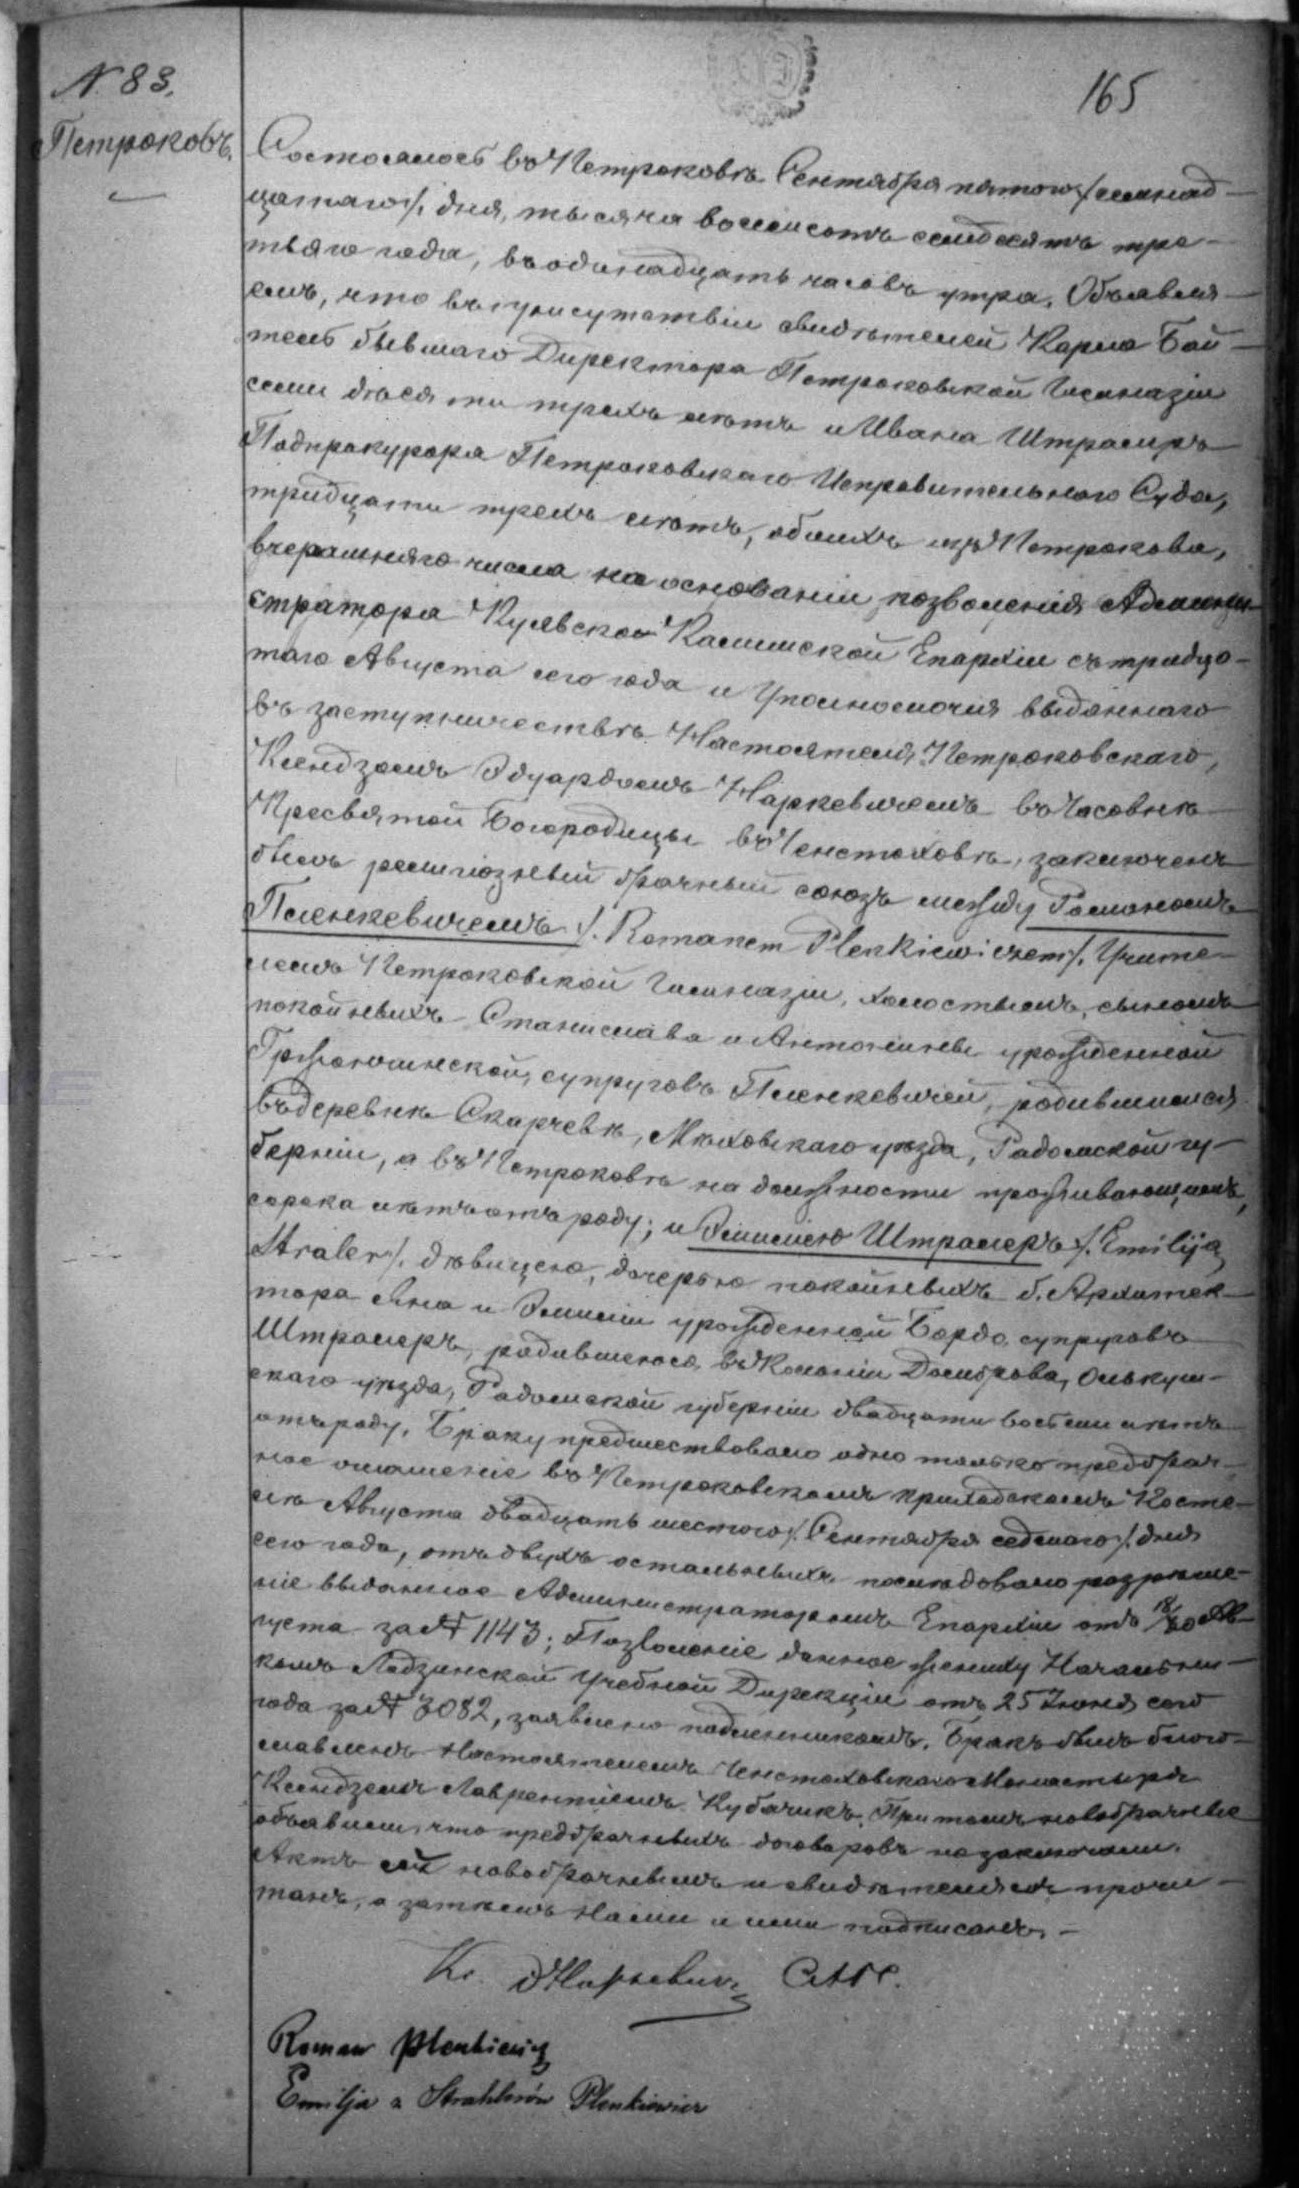 N 83.
165
Петроковъ.
Состоялось въ Петроковѣ Сентября пятого /семнад-
цатаго/ дня, тысяча восемсотъ семдесятъ тре-
тьяго года, въ одинадцать часовъ утра. Объявля-
емъ, что въ присутствіи свидѣтелей Карла Бай-
тель бывшаго Директора Петроковской Гимназіи
семи десяти трехъ лѣтъ и Ивана Штралеръ
Подпрокурора Петроковскаго Исправительного Суда,
тридцати трехъ лѣтъ, обоихъ изъ Петрокова,
вчерашняго числа на основаніи позволенія Админи-
стратора Куявско-Калишской Епархіи съ тридца-
таго Августа сего года и Уполномочія выданнаго
въ заступничествѣ Настоятеля Петроковскаго,
Ксендзомъ Эдуардомъ Наркевичемъ въ Часовнѣ
Пресвятой Богородицы въ Ченстоховѣ, заключенъ
былъ религіозный брачный союзъ между Романомъ
Пленкевичемъ /. Romanem Plenkiewiczem /. Учите-
лемъ Петроковской Гимназіи, холостымъ, сыномъ
покойныхъ Станислава и Антонины урожденной
супруговъ Пленкевичей, родившимся
въ деревнѣ Скарчевѣ, Мѣховскаго уѣзда, Радомской гу-
берніи, а въ Петроковѣ на должности проживающимъ,
сорока лѣтъ отъ роду; и Эмиліею Штралеръ /. Emiliją
Straler /. дѣвицею, дочерью покойныхъ б. Архитек-
тора Яна и Эмиліи урожденной Бордо супруговъ
Штралеръ, родившеюся въ Колоніи Домброва, Олькуш-
скаго уѣзда, Радомской губерніи двадцати восьми лѣтъ
отъ роду. Браку предшествовало одно только предбрач-
ное оглашеніе въ Петроковскомъ приходскомъ Косте-
лѣ Августа двадцать шестого /. Сентября седмаго /. дня
сего года, отъ двухъ остальныхъ послѣдовало разрѣше-
ніе выданное Администраторомъ Епархіи отъ 18/30 Ав-
густа за N 1143; Позволеніе данное жениху Начальни-
комъ Лодзинской Учебной Дирекціи отъ 25 Іюня сего
года за N 3082, заявлено подлинникомъ. Бракъ былъ благо-
славленъ Настоятелемъ Ченстоховскаго Монастыря
Ксендземъ Лаврентіемъ Кубачикъ. При томъ новобрачные
объявили, что предбрачныхъ договоровъ не заключали.
Актъ сей новобрачнымъ и свидѣтелямъ прочи-
танъ, а затѣмъ Нами и ими подписанъ. -
Кс. Э Наркевичъ
Roman Plenkiewicz
Emilja z Strahlerów Plenkiewicz